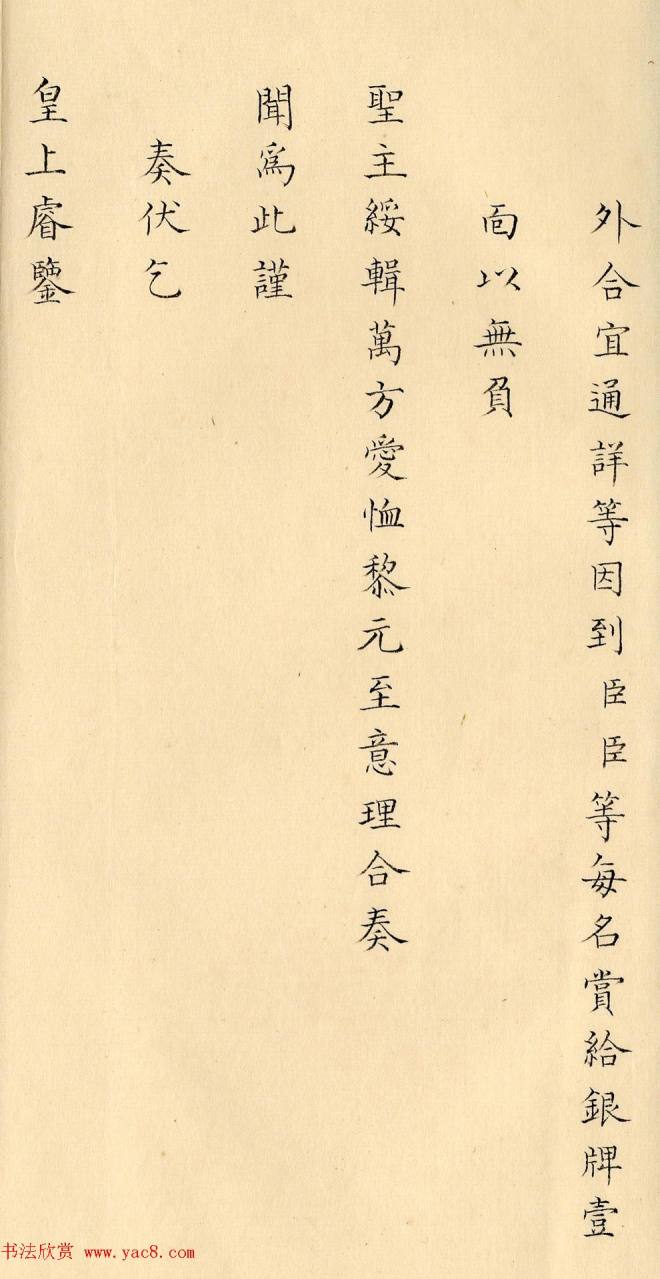 外合宜通詳等因到臣臣等每名賞給銀牌壹
面以無負
聖主綏輯萬方愛恤黎元至意理合奏
聞爲此謹
奏伏乞
皇上睿鑒
书法欣赏 www.yac8.com